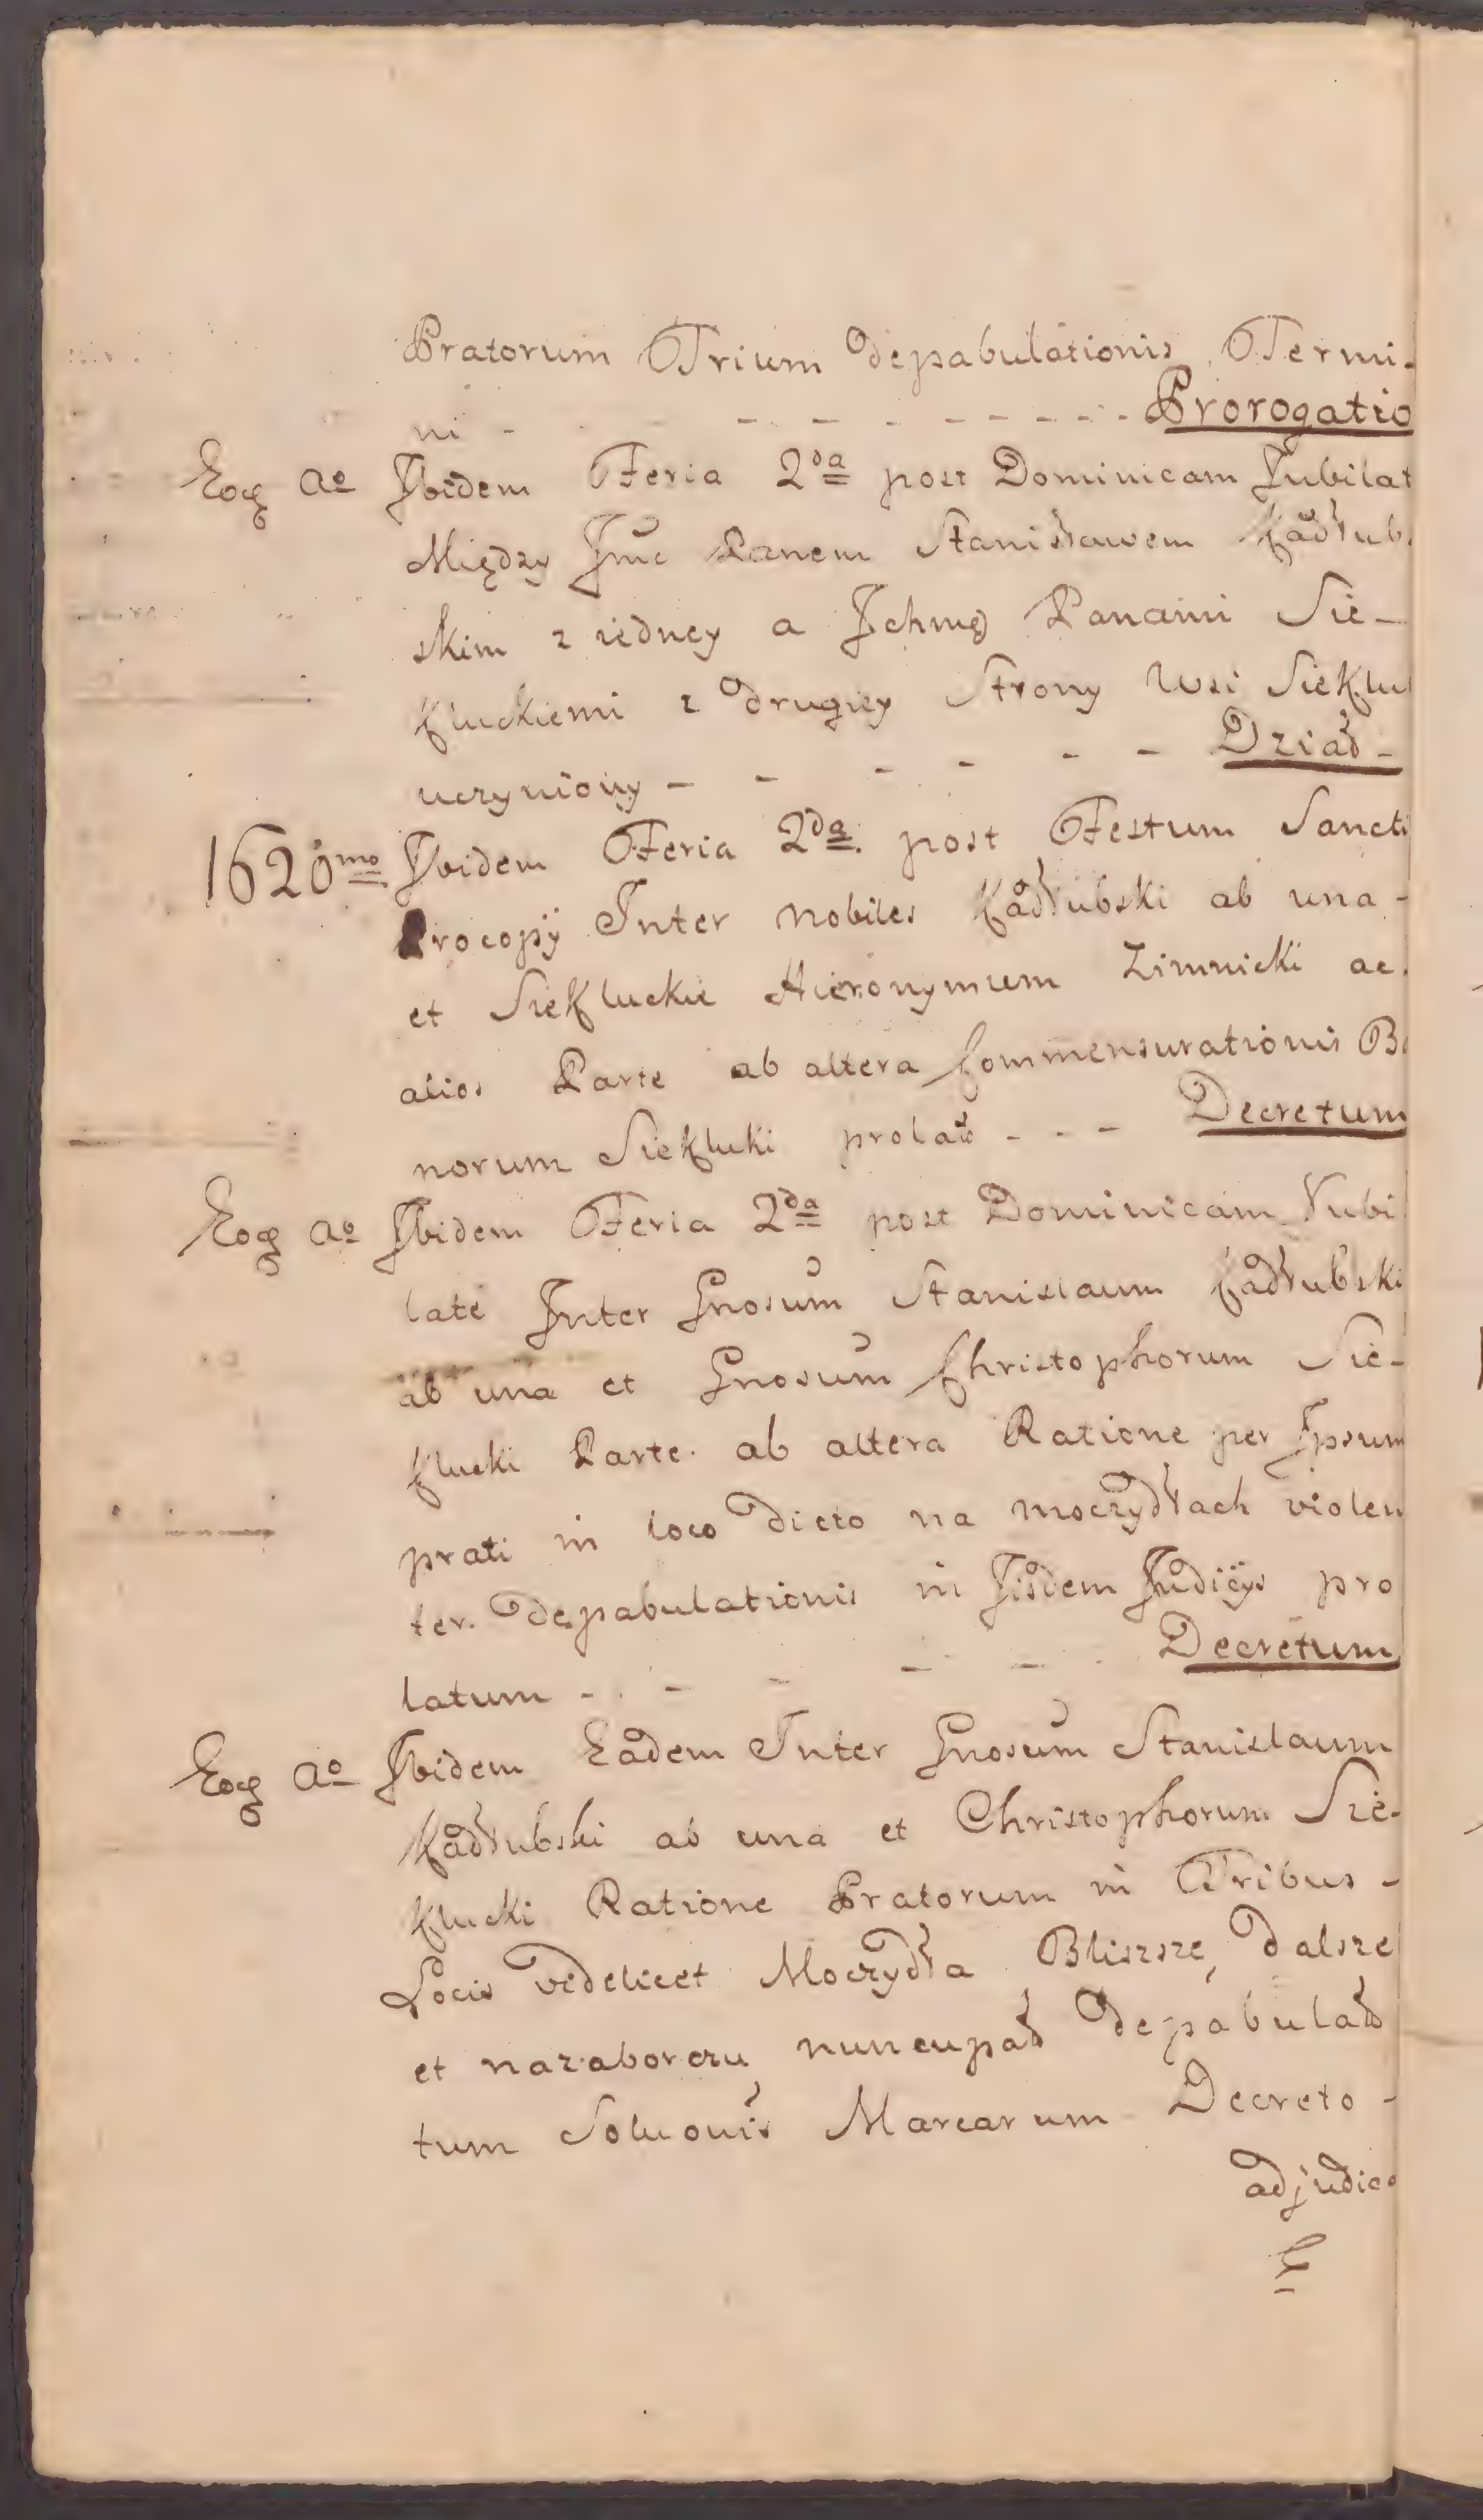 Pratorum Trium depabulationis Termi-
ni - - - - - - - - Prorogatio
Eoq Ao Ibidem Feria 2da post Dominicam Jubilat
Między Jmc Panem Stanisławem Kadłub.
skim z iedney a Ichmę Panami Sie-
kluckiemi z drugiey Strony Wsi Sieklu
uczyniony - - - - - - Dział -
1620mo Ibidem Feria 2da post Festum Sancti
Procopÿ Inter Nobiles Kadłubski ab una -
et Siekluckie Hieronymum Zimnicki ac.
alios Parte ab altera Commensurationis Bo
norum Siekluki prolat - - - Decretum
Eoq Ao Ibidem Feria 2da post Dominicam Jubi
late Inter Gnosum Stanislaum Kadłubski
ab una et Gnosum Christophorum Sie-
klucki Parte ab altera Ratione per Ipsum
prati in loco dicto na moczydłach violen
ter depabulationis in Iisdem Judicÿs pro
latum - - - - - Decretum
Eoq Ao Ibidem Eadem Inter Gnosum Stanislaum
Kadłubski ab una et Christophorum Sie-
klucki Ratione Pratorum in Tribus -
Locis videlicet Moczydła Bliszsze, dalsze
et nazaborczu nuncupat depabulat
tum Soluonis Marcarum Decreto -
adjudica